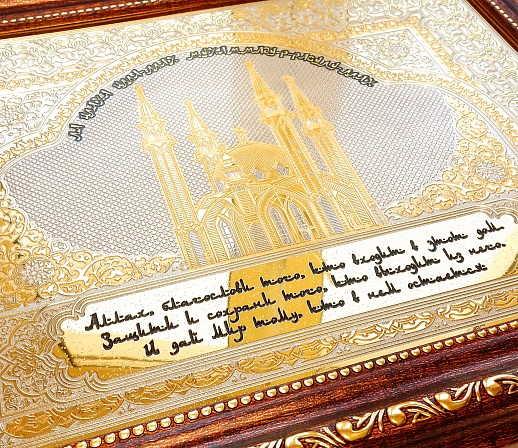 Аллах, благослови того, кто входит в этот дом.
Защити и сохрани того, кто выходит из него.
И дай Мир тому, кто в нем остается.